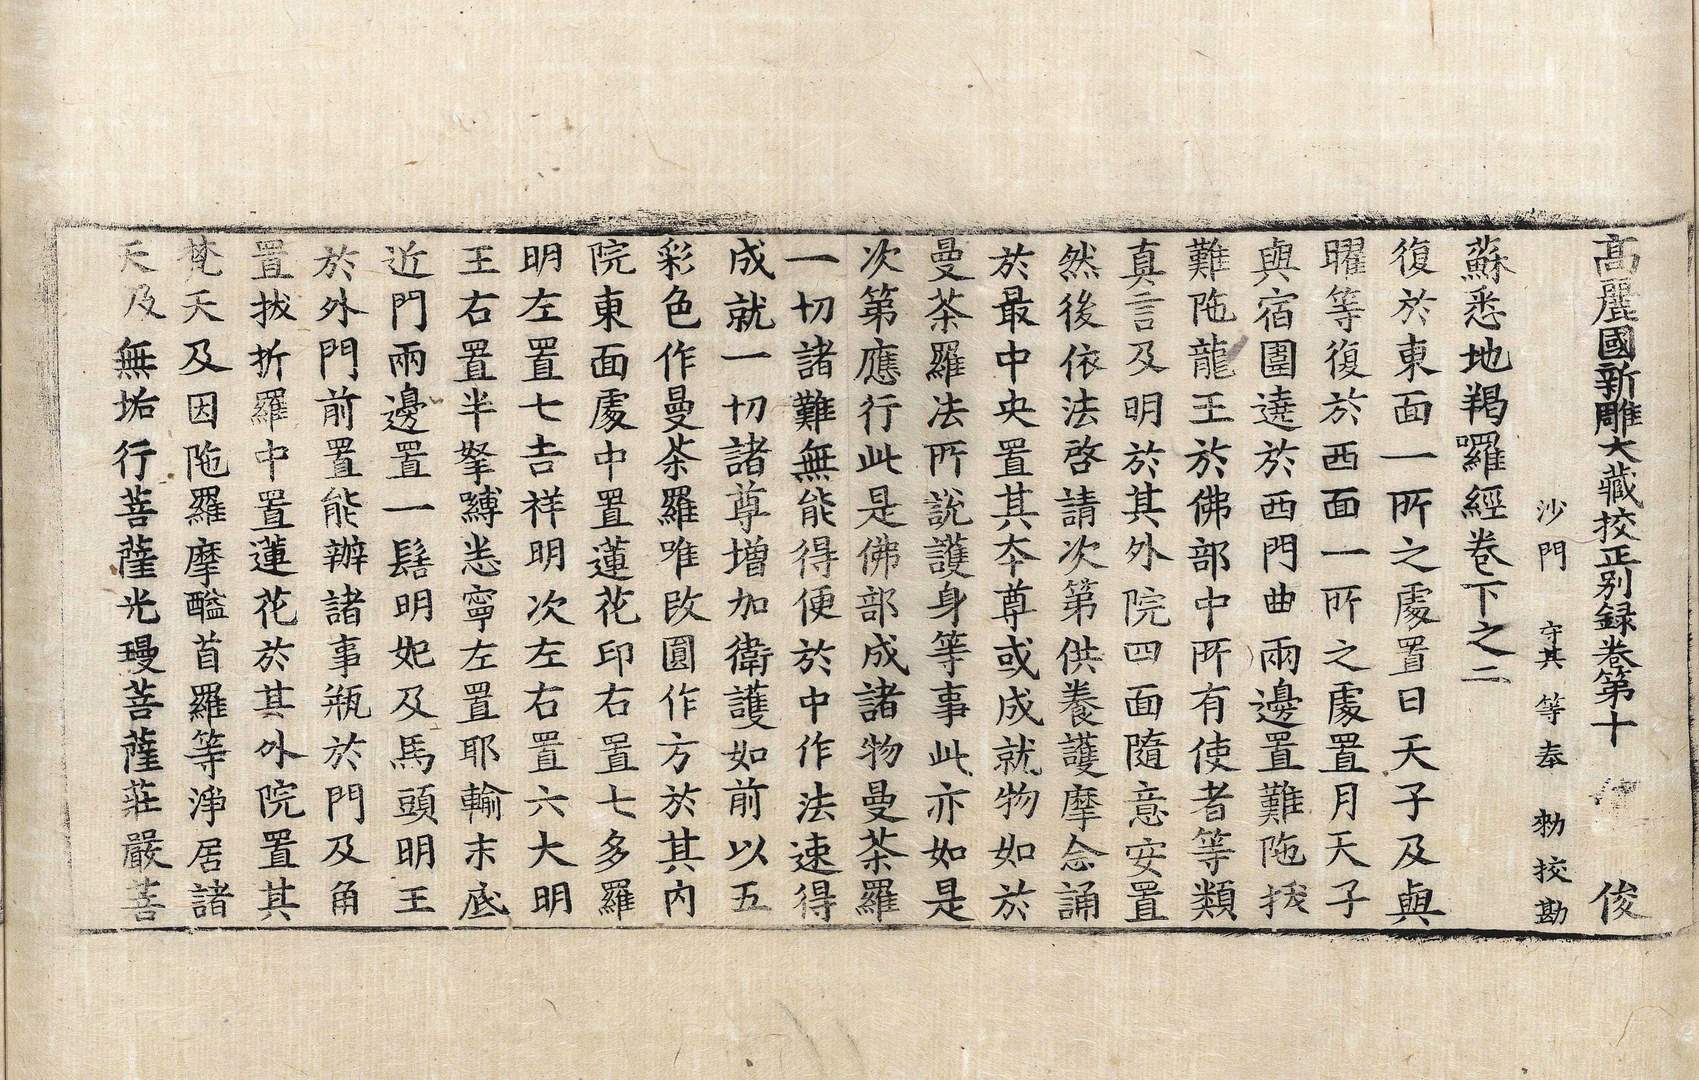 高麗國新雕大藏挍正別録卷第十 俊
沙門 守其 等奉 勑挍勘
蘇悉地羯囉經卷下之二
復於東面一所之處置日天子及與
曜等復於西面一所之處置月天子
與宿圍遶於西門曲兩邊置難陁拔
難陁龍王於佛部中所有使者等類
真言及明於其外院四面隨意安置
然後依法啓請次第供養護摩念誦
於最中央置其夲尊或成就物如於
曼茶羅法所說護身等事此亦如是
次第應行此是佛部成諸物曼茶羅
一切諸難無能得便於中作法速得
成就一切諸尊增加衛護如前以五
彩色作曼茶羅唯改圓作方於其內
院東面處中置蓮花印右置七多羅
明左置七吉祥明次左右置六大明
王右置半拏嚩悉寧左置耶輸末底
近門兩邊置一髻明妃及馬頭明王
於外門前置能辦諸事瓶於門及角
置拔折羅中置蓮花於其外院置其
梵天及因陁羅摩醯首羅等淨居諸
天及無垢行菩薩光𤨏菩薩莊嚴菩